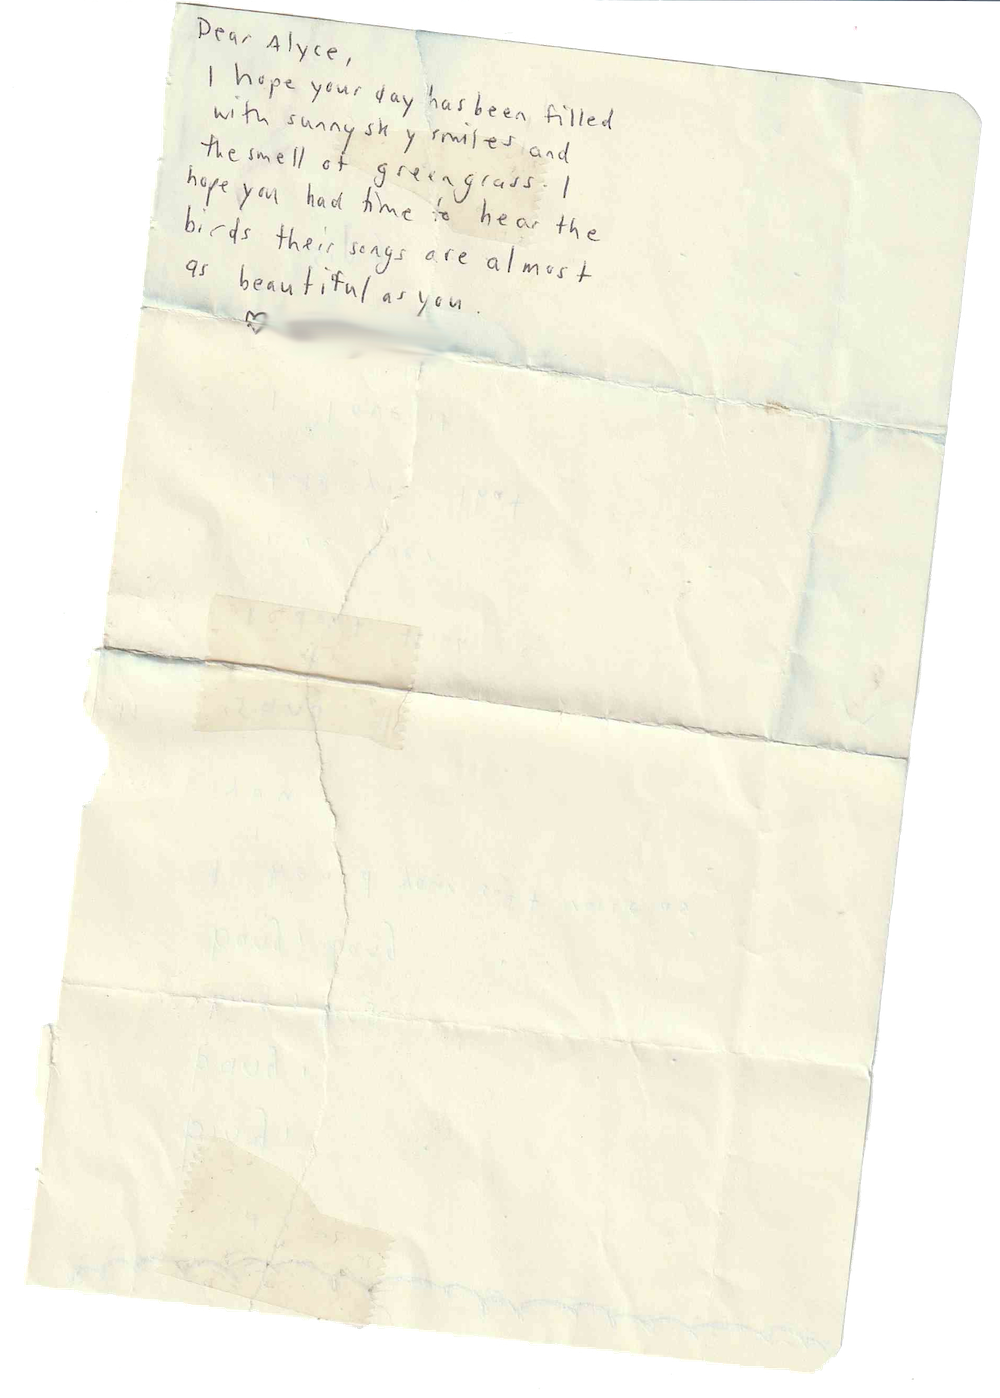 Dear Alyce,
I hope your day has been filled
with sunny sky smiles and
the smell of green grass. I
hope you had time to hear the
birds their songs are almost
as beautiful as you.
♡